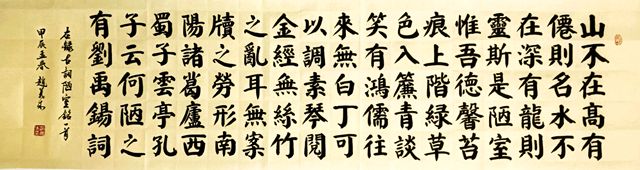 山不在高有
僊則名水不
在深有龍則
靈斯是陋室
惟吾德馨苔
痕上階緑草
色入簾青談
笑有鴻儒往
來無白丁可
以調素琴閲
金經無絲竹
之亂耳無案
牘之勞形南
陽諸葛廬西
蜀子雲亭孔
子云何陋之
有劉禹錫詞
錄古詞陋室銘一首
甲辰春趙